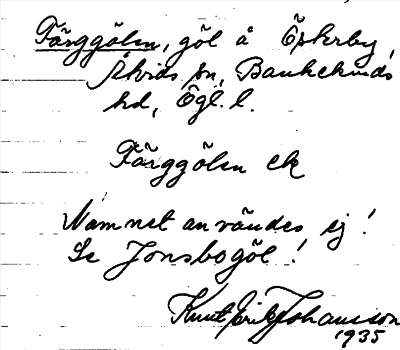 Färggölen, göl å Öskerby,
Åtvids sn, Bankekinds
hd, Ögl. l.
Färggölen ek
Namnet användes ej!
Se Jonsbogöl!
Knut Erik Johansson
1935